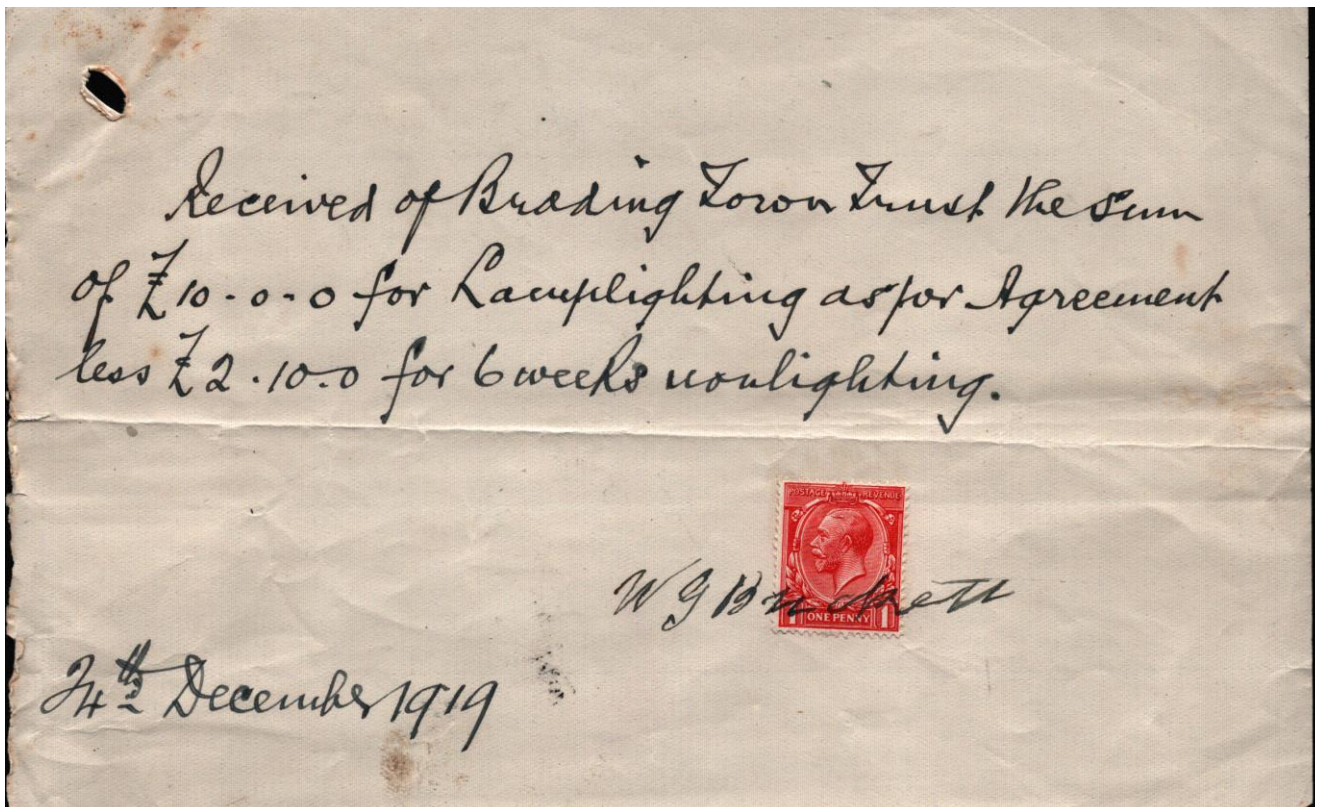 Received of Brading Town Trust the Sum
of £10-0-0 for Lamplighting as per Agreement
less £2.10.0 for 6 weeks nonlighting.
POSTAGE REVENUE
W G Buckett
1 ONE PENNY 1
24th December 1919